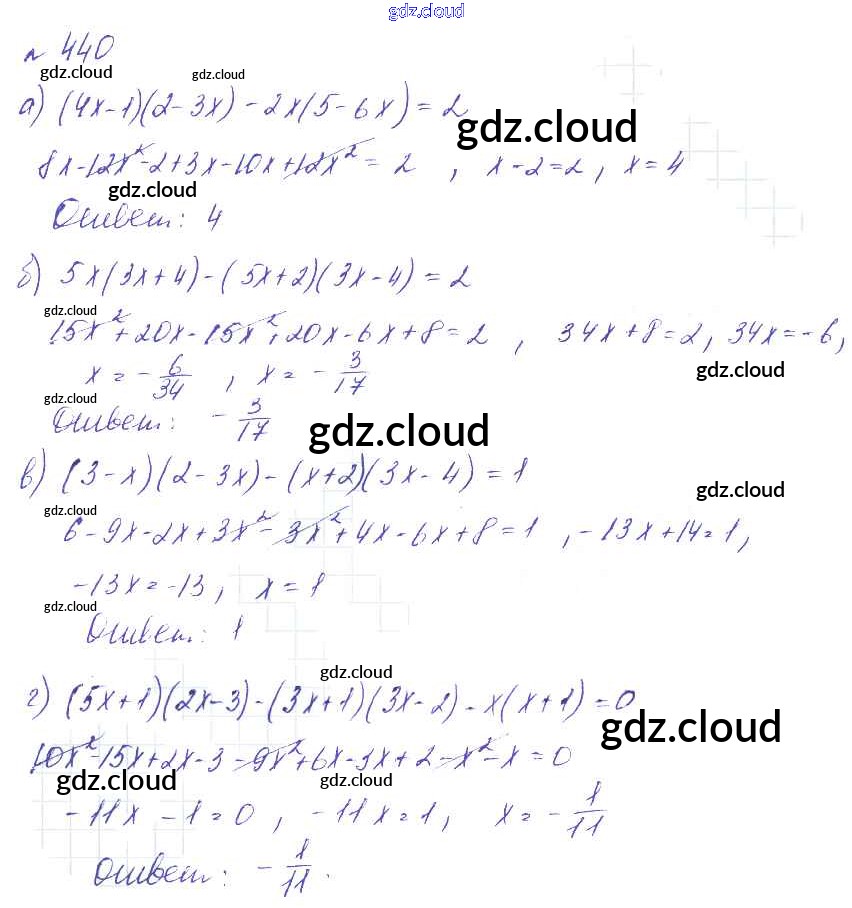 gdz.cloud
№ 440
gdz.cloud gdz.cloud
а) (4x-1)(2-3x)-2x(5-6x)=2
gdz.cloud
8x-12x²-2+3x-10x+12x²=2, x-2=2, x=4
gdz.cloud
Ответ: 4
б) 5x(3x+4)-(5x+2)(3x-4)=2
gdz.cloud
15x²+20x-15x²+20x-6x+8=2, 34x+8=2, 34x=-6,
gdz.cloud
x=-6/34, x=-3/17
gdz.cloud
Ответ: -3/17
gdz.cloud
в) (3-x)(2-3x)-(x+2)(3x-4)=1
gdz.cloud
gdz.cloud
6-9x-2x+3x²-3x²+4x-6x+8=1, -13x+14=1,
-13x=-13, x=1
gdz.cloud
Ответ: 1
gdz.cloud
г) (5x+1)(2x-3)-(3x+1)(3x-2)-x(x+1)=0
gdz.cloud
10x²-15x+2x-3-9x²+6x-3x+2-x²-x=0
gdz.cloud gdz.cloud
-11x-1=0, -11x=1, x=-1/11
Ответ: -1/11.